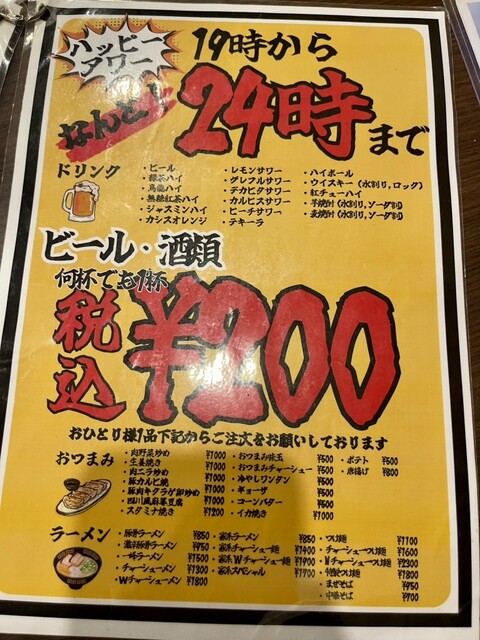 ハッピー
アワー
19時から
なんと！
24時まで
ドリンク
・ビール
・緑茶ハイ
・烏龍ハイ
・無糖紅茶ハイ
・ジャスミンハイ
・カシスオレンジ
・レモンサワー
・グレフルサワー
・デカビタサワー
・カルピスサワー
・ピーチサワー
・テキーラ
・ハイボール
・ウイスキー（水割り,ロック）
・紅チューハイ
・芋焼酎（水割り,ソーダ割）
・麦焼酎（水割り,ソーダ割）
ビール・酒類
何杯でも1杯
税込
¥200
おひとり様1品下記からご注文をお願いしております
おつまみ
・肉野菜炒め ¥1000
・生姜焼き ¥1000
・肉ニラ炒め ¥1000
・豚カルビ焼 ¥1000
・豚肉キクラゲ卵炒め ¥1000
・四川風麻婆豆腐 ¥1000
・スタミナ焼き ¥1200
・おつまみ味玉 ¥500
・おつまみチャーシュー ¥500
・冷やしワンタン ¥500
・ギョーザ ¥500
・コーンバター ¥500
・イカ焼き ¥1000
・ポテト ¥500
・唐揚げ ¥800
ラーメン
・豚骨ラーメン ¥850
・濃厚豚骨ラーメン ¥950
・ラーメン ¥1500
・チャーシューメン ¥1300
・Wチャーシューメン ¥1800
・家系ラーメン ¥950
・家系チャーシュー麺 ¥1400
・家系Wチャーシュー麺 ¥1900
・家系スペシャル ¥1700
・つけ麺 ¥1100
・チャーシューつけ麺 ¥1600
・Wチャーシューつけ麺 ¥2300
・特製つけ麺 ¥1800
・まぜそば ¥950
・中華そば ¥700